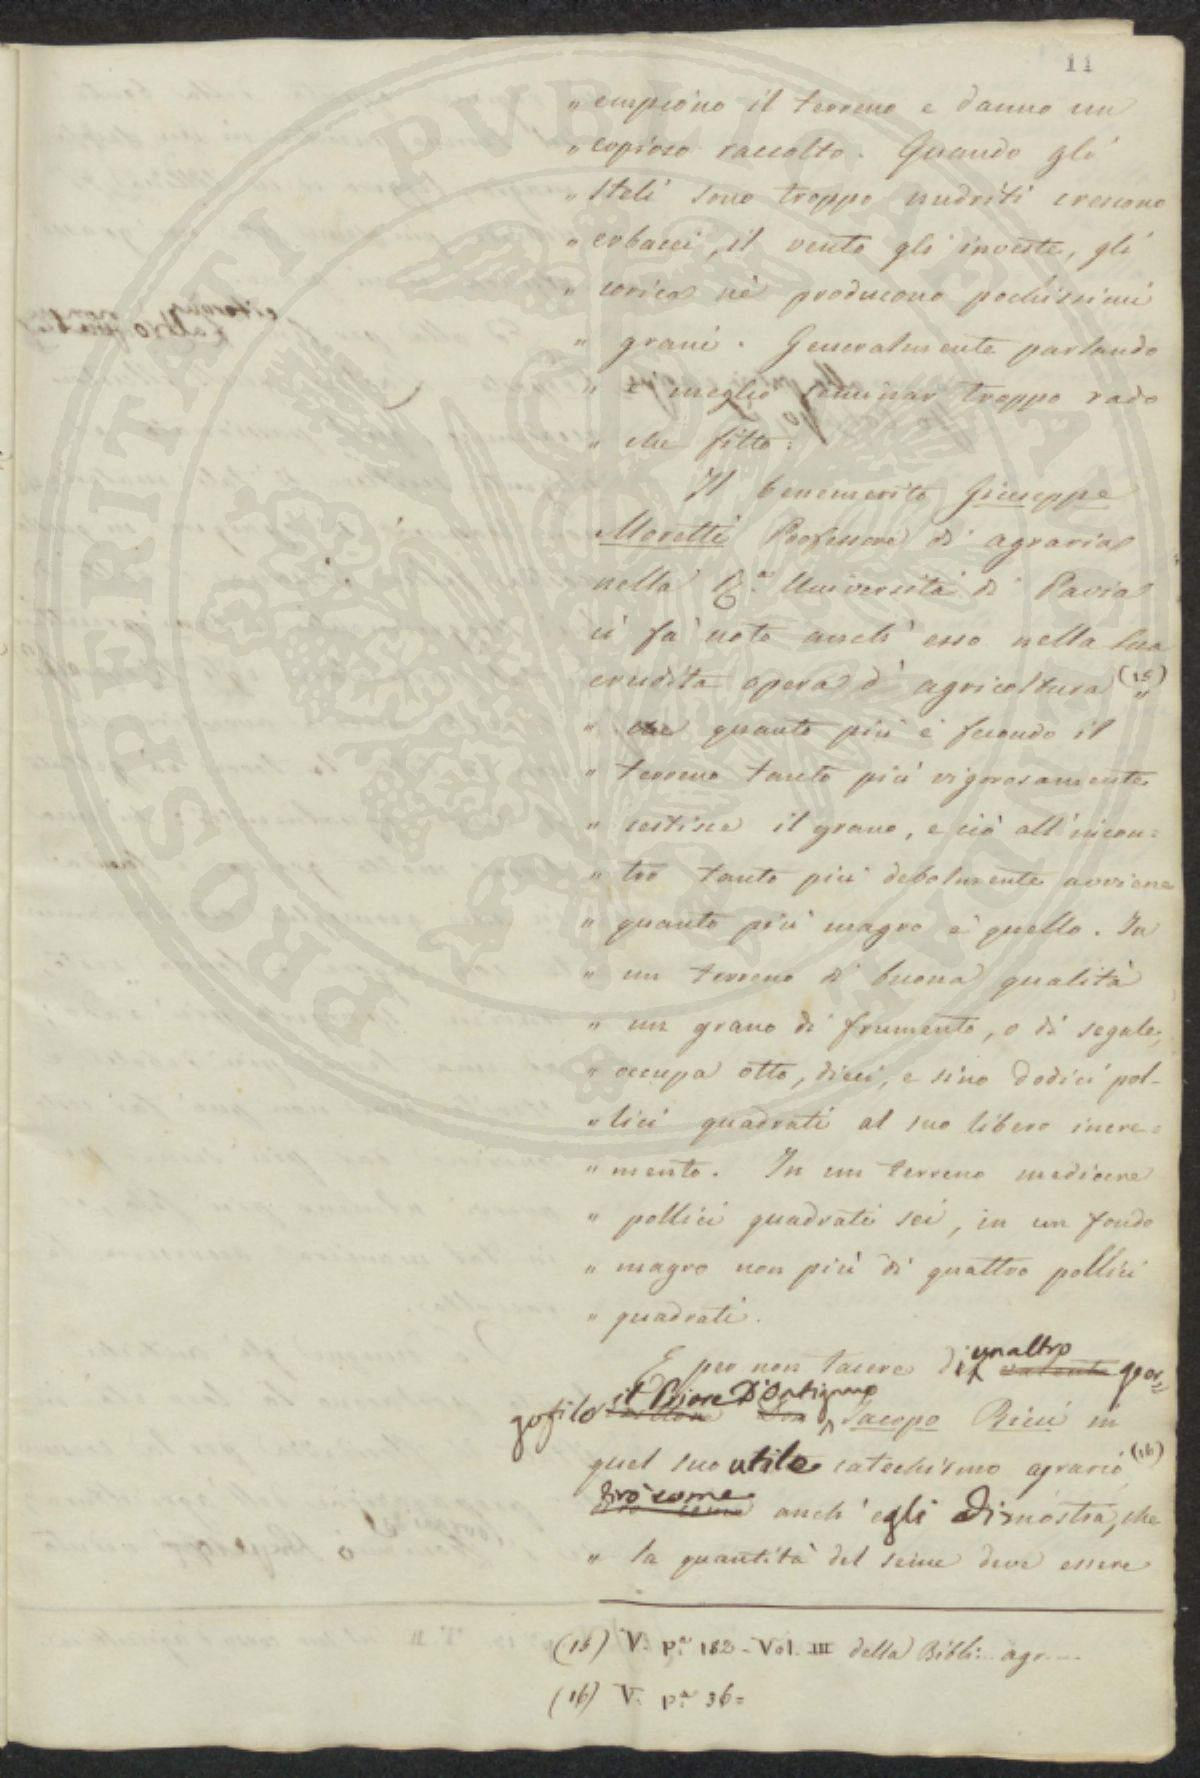 11
" empiono il terreno e danno un
" copioso raccolto. Quando gli
" steli sono troppo nudriti crescono
" erbacei, il vento gli investe, gli
" corica nè producono pochissimi
" grani. Generalmente parlando
" è meglio seminar troppo rado
" che fitto.
Il benemerito Giuseppe
Moretti Professore di agraria
nella R.a Università di Pavia
ci fà noto anch' esso nella sua
erudita opera d' agricoltura (15) "
" che quanto più è fecondo il
" terreno tanto più vigorosamente
" cestisce il grano, e ciò all' incon=
" tro tanto più debolmente avviene
" quanto più magro è quello. In
" un terreno di buona qualità
" un grano di frumento, o di segale,
" occupa otto, dieci, e sino dodici pol-
" lici quadrati al suo libero incre=
" mento. In un terreno mediocre
" pollici quadrati sei, in un fondo
" magro non più di quattro pollici
" quadrati.
E per non tacere di un altro geor=
gofilo il Priore D' Ortignano Jacopo Ricci in
quel suo utile catechismo agrario (16)
dirò come anch' egli dimostra, che
" la quantità del seme deve essere
(15) V. P.a 183 - Vol. III della Bibli: agr.
(16) V. p.a 36=
PROSPERITATI PUBLICAE AUGENDAE